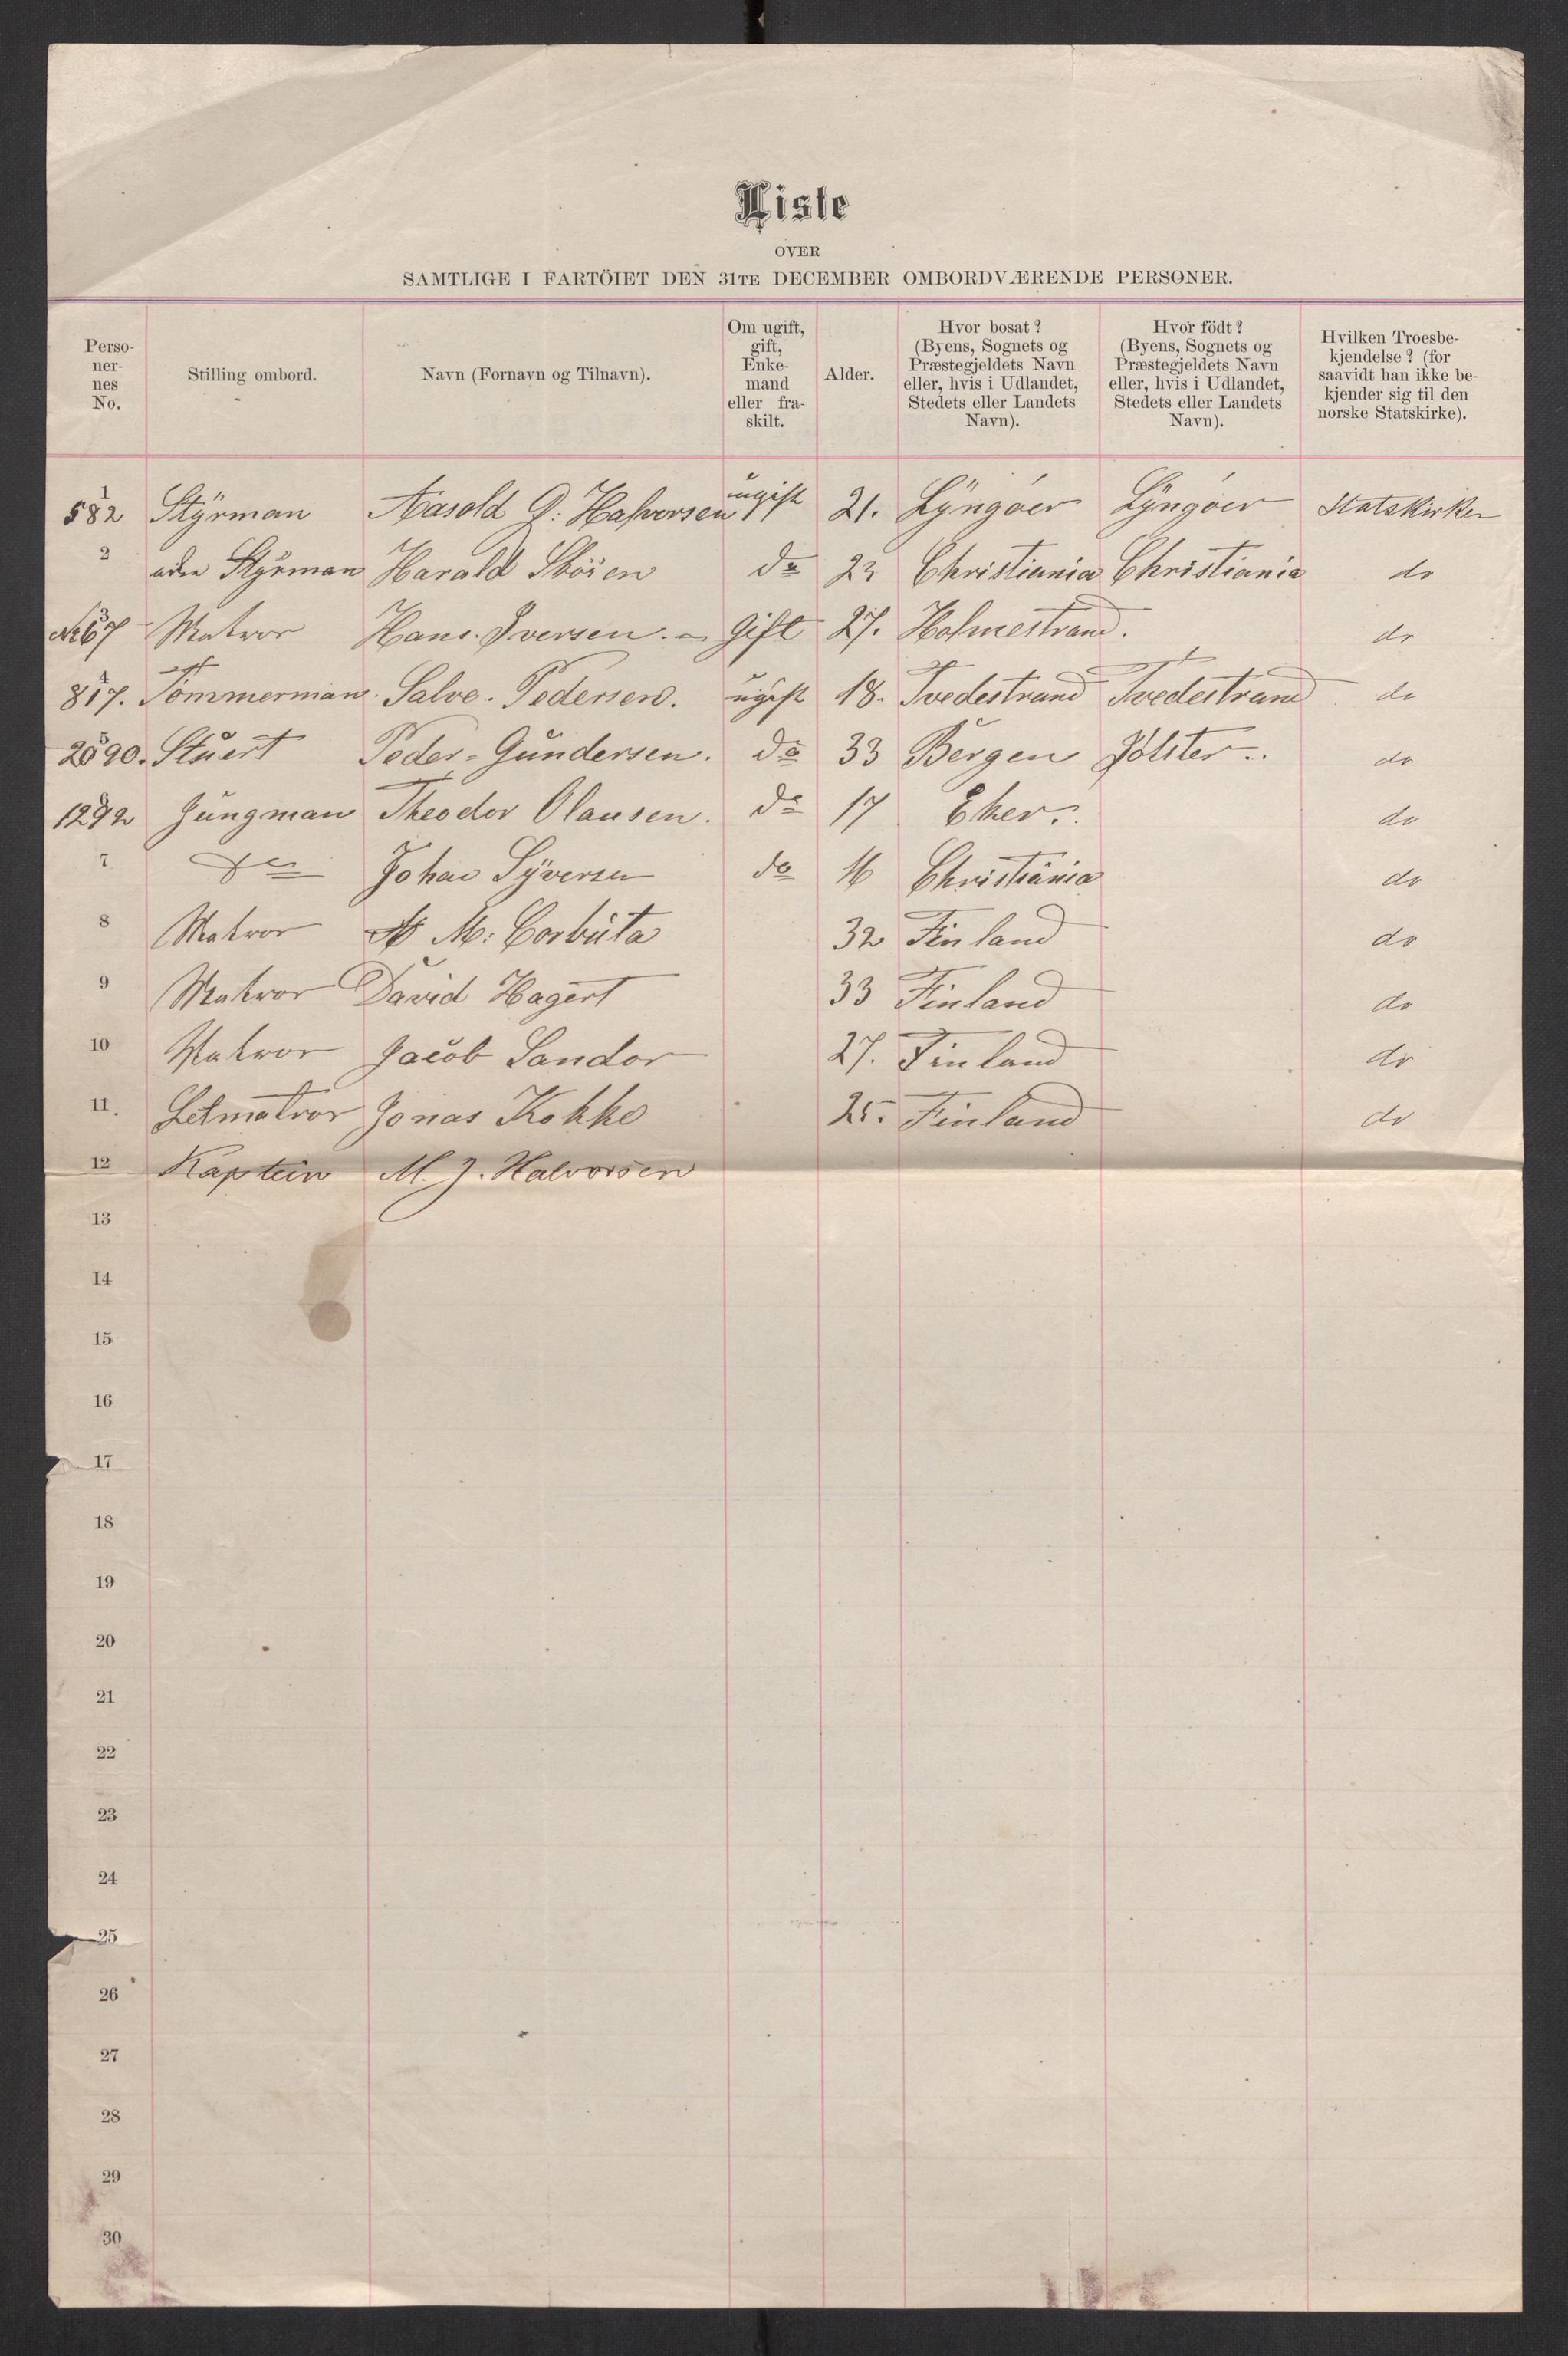 Liste
OVER
SAMTLIGE I FARTÖIET DEN 31TE DECEMBER OMBORDVÆRENDE PERSONER.
Perso-
ner-
nes
No.
Stilling ombord.
Navn (Fornavn og Tilnavn).
Om ugift,
gift,
Enke-
mand
eller fra-
skilt.
Alder.
Hvor bosat?
(Byens, Sognets og
Præstegjeldets Navn
eller, hvis i Udlandet,
Stedets eller Landets
Navn).
Hvor födt?
(Byens, Sognets og
Præstegjeldets Navn
eller, hvis i Udlandet,
Stedets eller Landets
Navn).
Hvilken Troesbe-
kjendelse? (for
saavidt han ikke be-
kjender sig til den
norske Statskirke).
1 582 Styrman Aasold G. Halvorsen ugift 21. Lyngöer Lyngöer Statskirken
2 Styrman Harald do 23 Christiania Christiania do
3 Matros Hans Iversen. gift 27. Holmestrand. do
4 817. Tömmerman Salve. Pedersen. ugift 18. Tvedestrand Tvedestrand do
5 2090. Stuert Peder-Gundersen. do 33 Bergen Jölster do
6 1292 Jungman Theodor Olausen. do 17 Eker. do
7 do Johan Syversen do 16 Christiania do
8 Matros M: Corbuta 32 Finland do
9 Matros David Hagert 33 Finland do
10 Matros Jacob Sandor 27. Finland do
11. Letmatros Jonas Kokko 25. Finland do
12 Kaptein M. J. Halvorsen
13
14
15
16
17
18
19
20
21
22
23
24
25
26
27
28
29
30